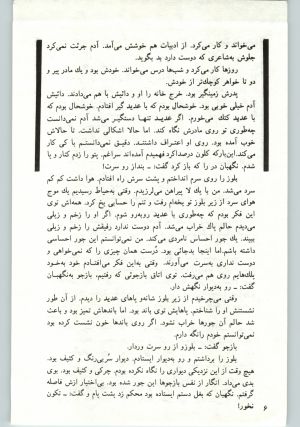 می‌خواند و کار می‌کرد. از ادبیات هم خوشش می‌آمد. آدم جرئت نمی‌کرد
جلوش به‌شاعری که دوست دارد بد بگوید.
روزها کار می‌کرد و شب‌ها درس می‌خواند. خودش بود و یک مادر پیر و
دو تا خواهر کوچك‌تر از خودش.
پدرش زمینگیر بود. خرج خانه را او و دائیش با هم می‌دادند. دائیش
آدم خیلی خوبی بود. خوشحال بودم که با عدید گیر افتادم. خوشحال بودم که
با عدید کتك می‌خورم. اگر عدید تنها دستگیر می‌شد آدم نمی‌دانست
چه‌طوری تو روی مادرش نگاه کند. اما حالا اشکالی نداشت. تا حالاش
خوب آمده بود. روی او اعتراف داشتند. دقیق نمی‌دانستم با کی کار
می‌کند. این‌بار که کلون درصدا کرد فهمیدم آمده‌اند سراغم. پتو را زدم کنار و پا
شدم. نگهبان در را که باز کرد گفت: ـ بنداز رو سرت!
بلوز را روی سرم انداختم و پشت سرش راه افتادم. هوا داشت کم کم
سرد می‌شد. من با یك لا پیراهن می‌لرزیدم. وقتی به‌حیاط رسیدیم یك موج
هوای سرد از زیر بلوز تو یخه‌ام رفت و تنم را حسابی یخ کرد. همه‌اش توی
این فکر بودم که چه‌طوری با عدید روبه‌رو شوم. اگر او را زخم و زیلی
می‌دیدم حالم خراب می‌شد. آدم دوست ندارد رفیقش را زخم و زیلی
ببیند. یك جور احساس نامردی می‌کند. من نمی‌توانستم این جور احساسی
داشته باشم. اما اینجا بدجائی بود. درست همان چیزی را که نمی‌خواهی و
دوست نداری به‌سرت می‌آورند. وقتی به‌این فکر می‌افتادم خود به‌خود
پلك‌هایم روی هم می‌رفت. توی اتاق بازجوئی که رفتیم، بازجو به‌نگهبان
گفت: ـ رو به‌دیوار نگهش دار.
وقتی می‌چرخیدم از زیر بلوز شانه‌و پاهای عدید را دیدم. از آن طور
نشستنش او را شناختم. پاهایش توی باند بود. اما باندهاش تمیز بود و باعث
شد حالم آن جورها خراب نشود. اگر روی باندها خون نشست کرده بود
نمی‌توانستم خودم را نگه دارم.
بازجو گفت: ـ بلوزو از رو سرت وردار.
بلوز را برداشتم و رو به‌دیوار ایستادم. دیوار سربی‌رنگ و کثیف بود.
هیچ وقت از این نزدیکی دیواری را نگاه نکرده بودم. چرکی و کثیف بود. بوی
بدی می‌داد. انگار از نفس بازجوها این جور شده بود. بی‌اختیار ازش فاصله
گرفتم. نگهبان که بغل دستم ایستاده بود محکم زد پشت پام و گفت: ـ تکون
نخور!
۶